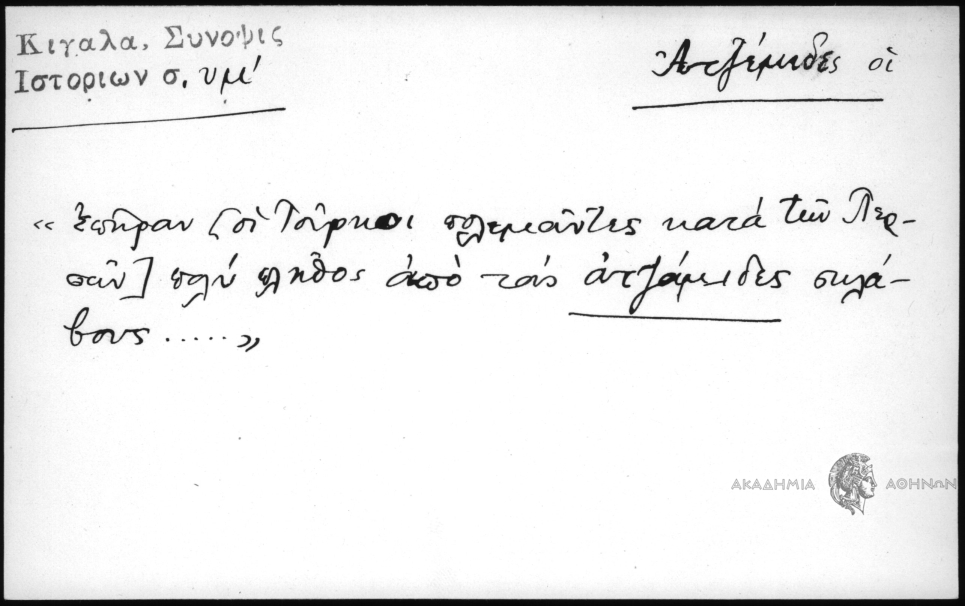 Κιγαλα, Συνοψις
Ιστοριων σ. υμί
Ἀτζέμιδες οἱ
« ἐπῆραν [οἱ Τοῦρκοι πολεμῶντες κατά τῶν Περ-
σῶν] πολύ πλῆθος ἀπό τούς ἀτζάμιδες σκλά-
βους ..... »
ΑΚΑΔΗΜΙΑ ΑΘΗΝΩΝ